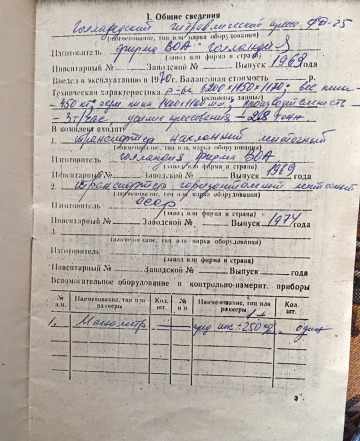 1. Общие сведения
Голландский гидравлический пресс ФД-25
(наименование, тип или марка оборудования)
Изготовитель фирма ВОА Голландия
(завод или фирма и страна)
Инвентарный № Заводской № Выпуск 1969
Введен в эксплуатацию в 1970 г. Балансовая стоимость р.
Техническая характеристика
(основные данные)
производительность
- 3т/час усилие прессования
В комплект входит:
1. транспортер наклонный ленточный
(наименование, тип или марка оборудования)
Изготовитель голландия фирма ВОА
(завод или фирма и страна)
Инвентарный № Заводской № Выпуск 1969 года
2. транспортер горизонтальный ленточный
(наименование, тип или марка оборудования)
Изготовитель СССР
(завод или фирма и страна)
Инвентарный № Заводской № Выпуск 1974 года
(наименование, тип или марка оборудования)
Изготовитель
(завод или фирма и страна)
Инвентарный № Заводской № Выпуск года
Вспомогательное оборудование и контрольно-измерит. приборы
№ п.п. Наименование, тип или размеры Кол. шт. № п п Наименование, тип или размеры Кол. шт.
1. Манометр один
3